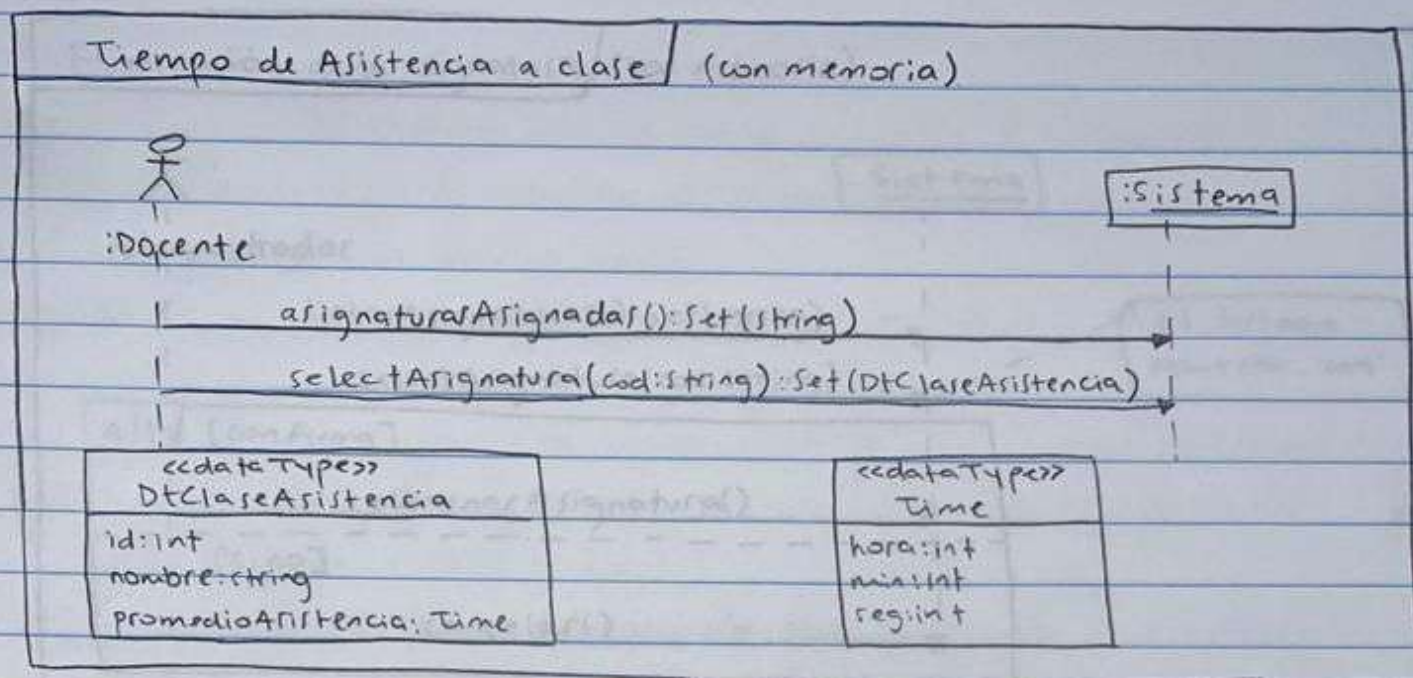 Tiempo de Asistencia a clase (con memoria)
:Sistema
:Docente
asignaturasAsignadas():Set(string)
selectAsignatura(cod:string):Set(DtClaseAsistencia)
<<dataType>>
DtClaseAsistencia
id:int
nombre:string
promedioAsistencia: Time
<<dataType>>
Time
hora:int
min:int
seg:int